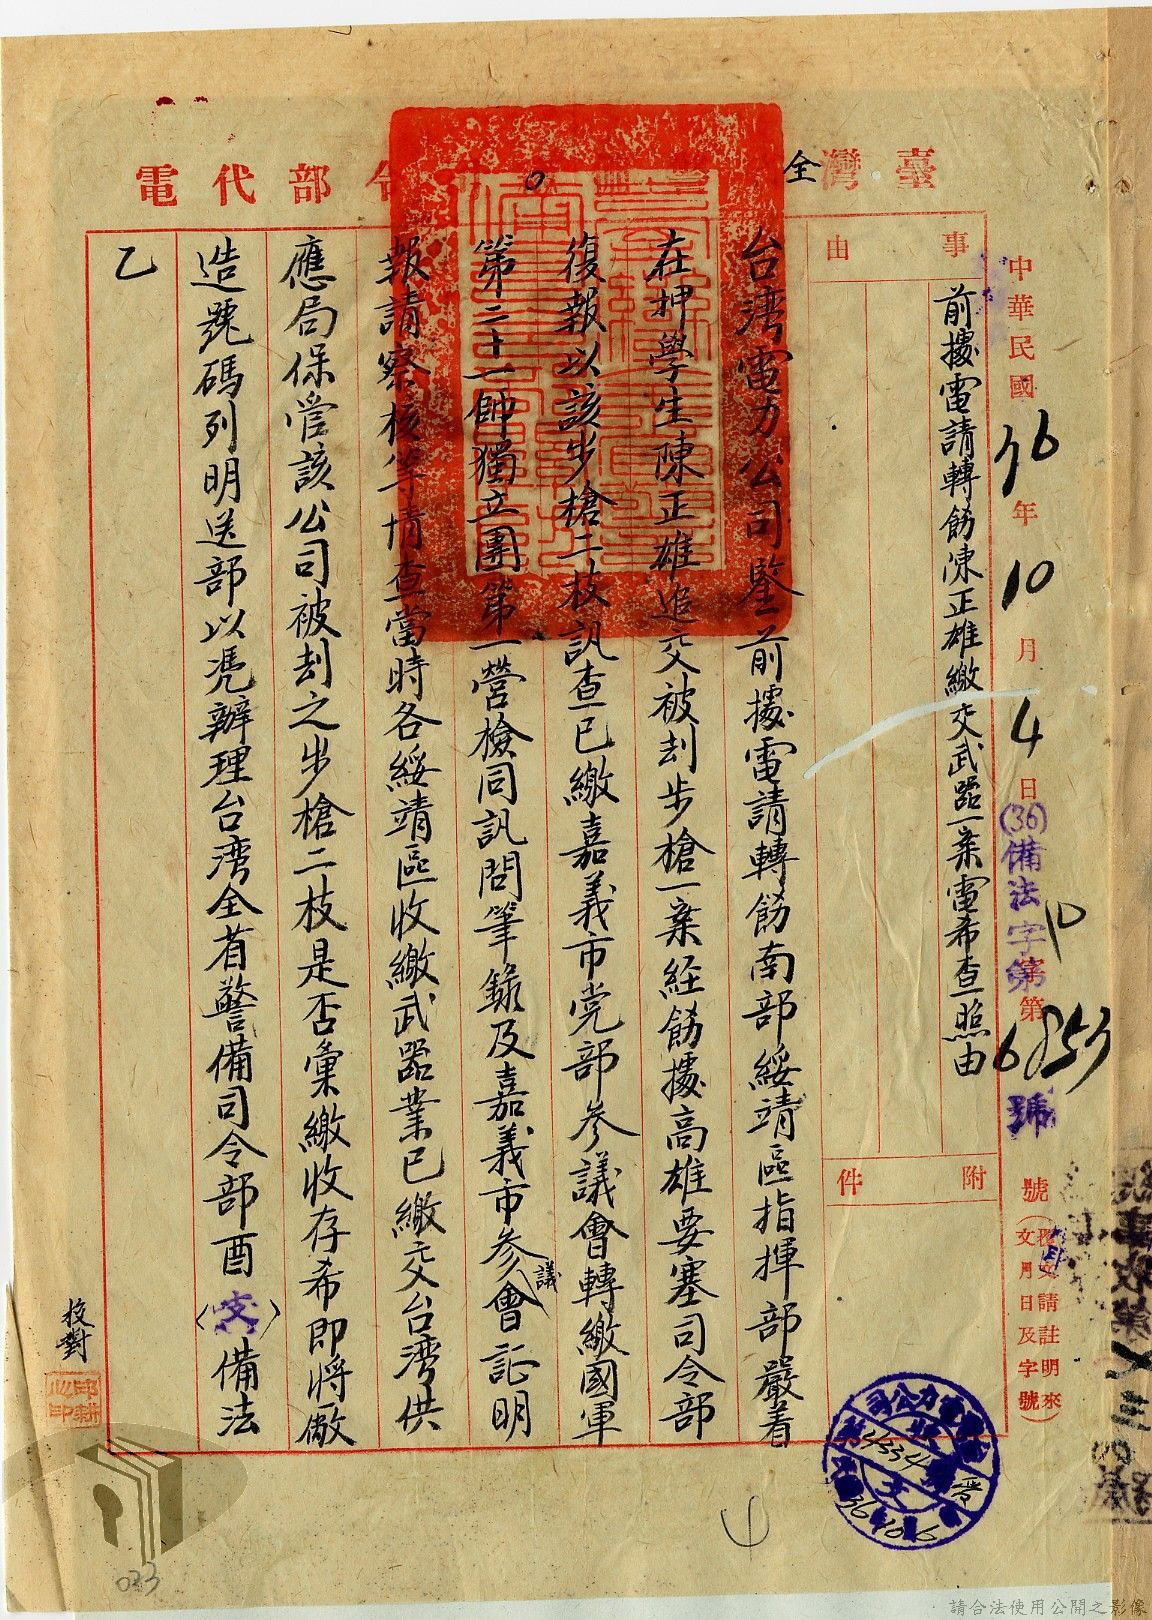 臺灣全
令部代電
中華民國36年10月4日
(36)備法字第
第6853號
號(復文請註明來文月日及字號)
事由
前據電請轉飭陳正雄繳交武器一案電希查照由
附件
台湾電力公司鑒前據電請轉飭南部綏靖區指揮部嚴着
在押學生陳正雄追交被刦步槍一案経飭據高雄要塞司令部
復報以該步槍二枝訊查已繳嘉義市党部參議會轉繳國軍
第二十一師獨立團第一營檢同訊問筆錄及嘉義市參議會証明
報請察核等情查當時各綏靖區收繳武器業已繳交台湾供
應局保管該公司被刦之步槍二枝是否彙繳收存希即將廠
造號碼列明送部以凭辦理台湾全省警備司令部酉(支)備法
乙
校對
4334
361016
033
請合法使用公開之影像